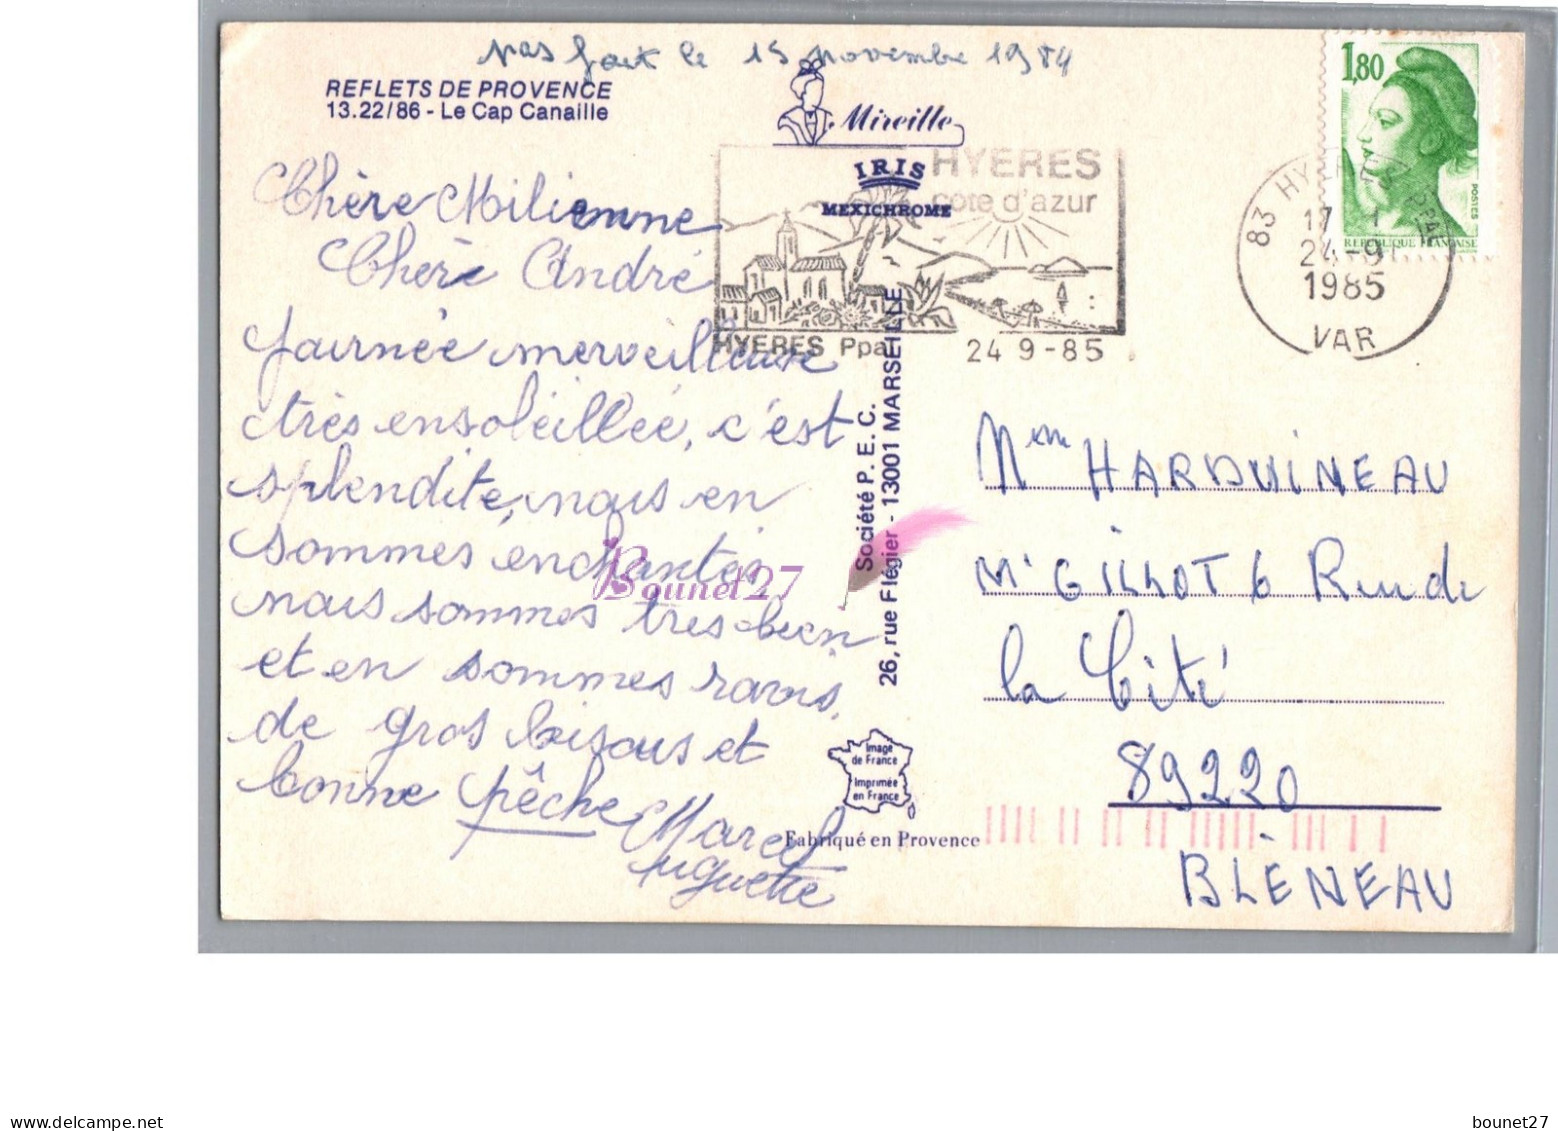 pas fait le 15 novembre 1984
REFLETS DE PROVENCE
13.22/86 - Le Cap Canaille
Mireille
IRIS
MEXICHROME
HYERES
cote d'azur
HYERES Ppal
24 9-85
1,80
POSTES
REPUBLIQUE FRANÇAISE
83 HYERES PPAL
24-9
1985
VAR
Chère Milienne
Chère André
Journée merveilleuse
très ensoleillée, c'est
splendite, nous en
sommes enchantés,
nous sommes très bien
et en sommes ravis,
de gros bisous et
bonne pêche
Marcel
uguette
Société P. E. C.
26, rue Flégier - 13001 MARSEILLE
Bounet27
Image
de France
Imprimée
en France
Fabriqué en Provence
Mem HARDUINEAU
Mr GILLOT 6 Rue de
la Cité
89220
BLÉNEAU
delcampe.net
bounet27